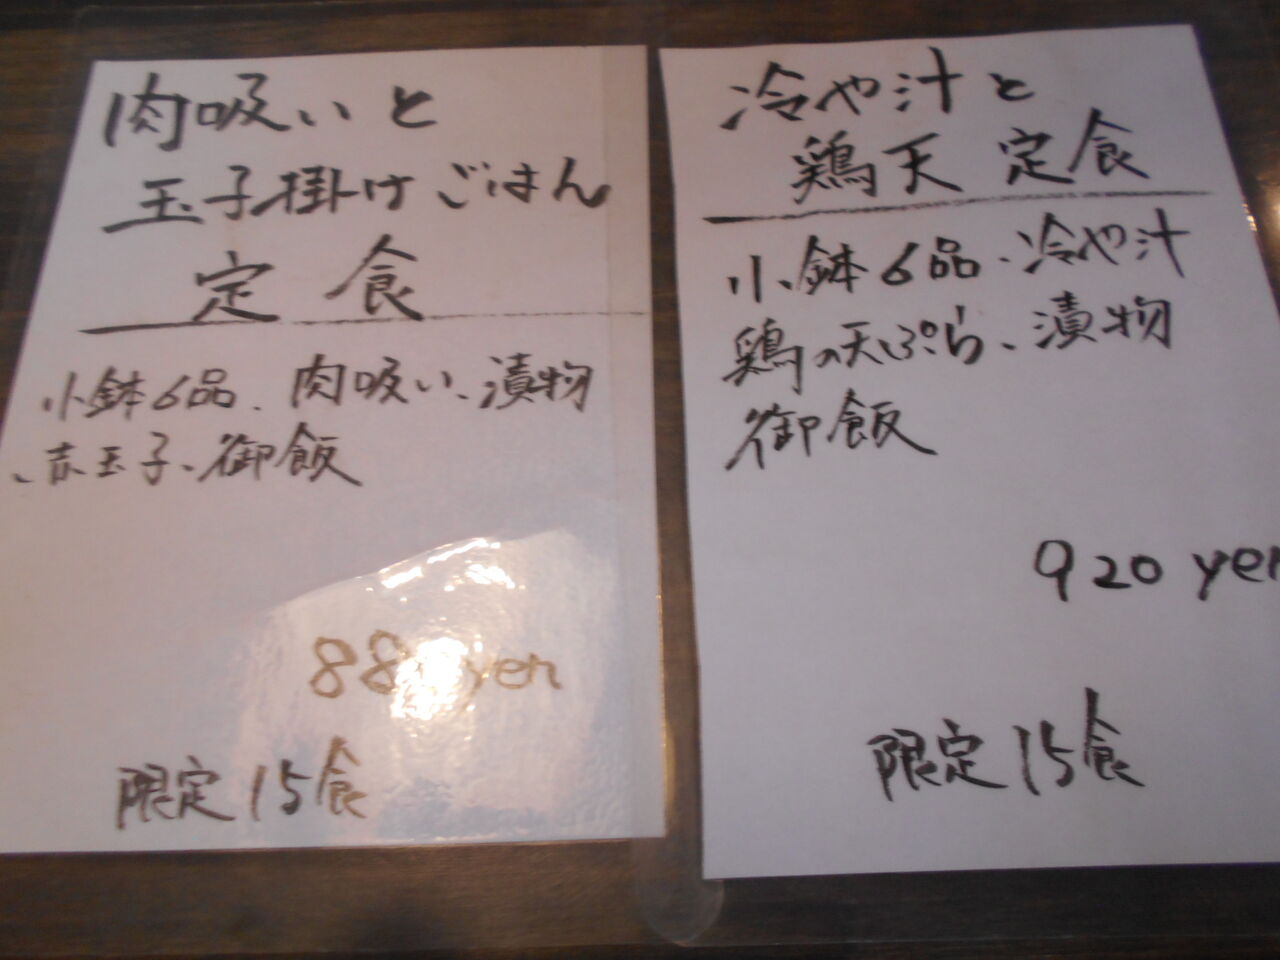 肉吸いと
玉子掛けごはん
定食
小鉢6品、肉吸い、漬物
、赤玉子、御飯
yen
限定15食
冷や汁と
鶏天定食
小鉢6品、冷や汁
鶏の天ぷら、漬物
御飯
920 yen
限定15食